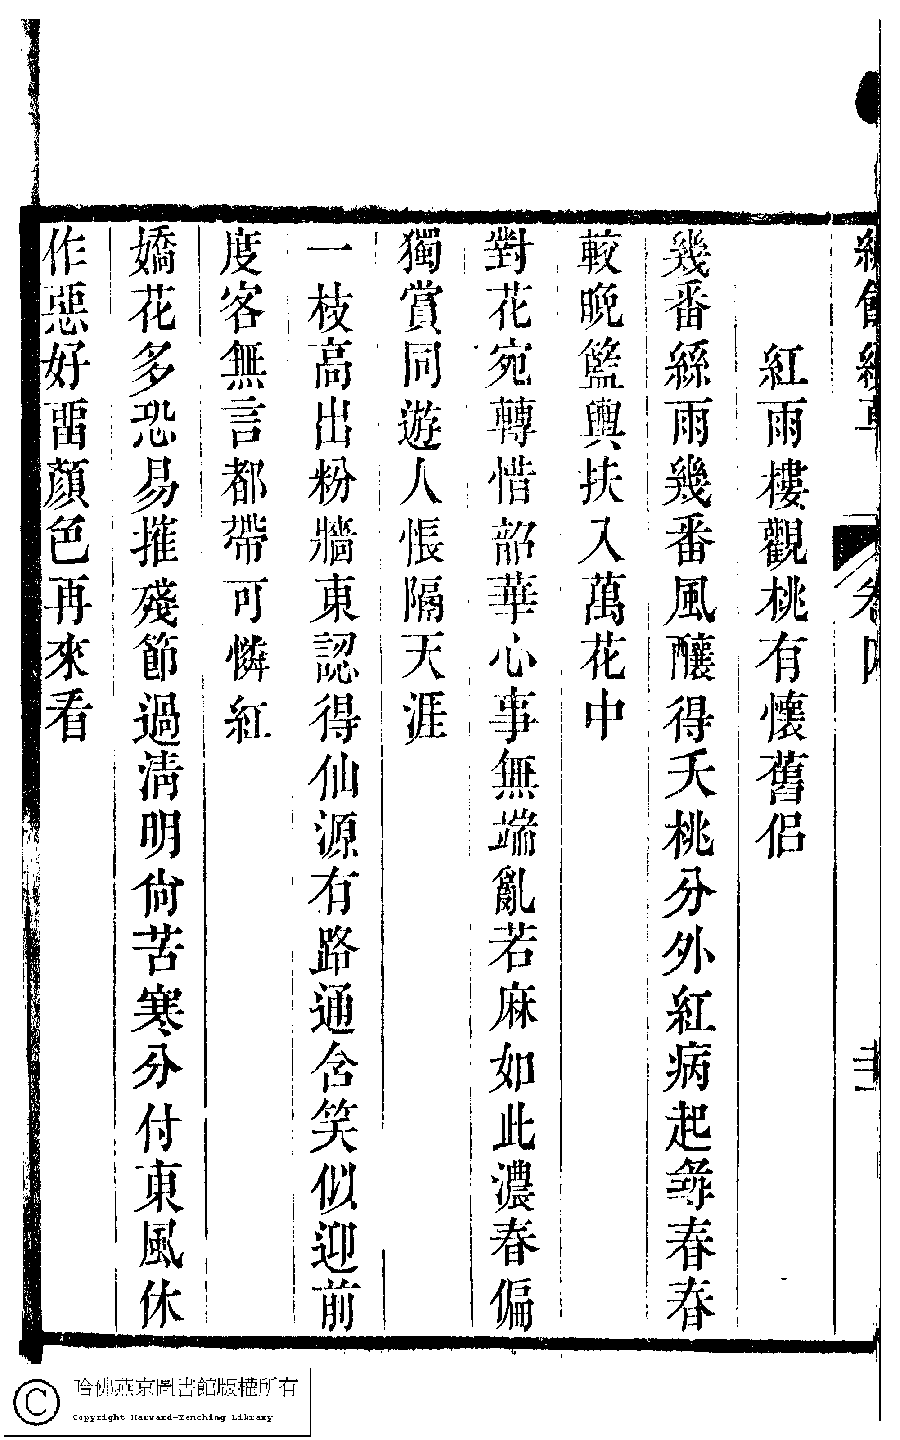 紅雨樓觀桃有懷舊侶
幾番絲雨幾番風釀得夭桃分外紅病起尋春春
較晚籃輿扶入萬花中
對花宛轉惜韶華心事無端亂若麻如此濃春偏
獨賞同遊人悵隔天涯
一枝高出粉牆東認得仙源有路通含笑似迎前
度客無言都帶可憐紅
嬌花多恐易摧殘節過淸明尙苦寒分付東風休
作惡好畱顏色再來看
卷四
哈佛燕京圖書館版權所有
Copyright Harvard-Yenching Library